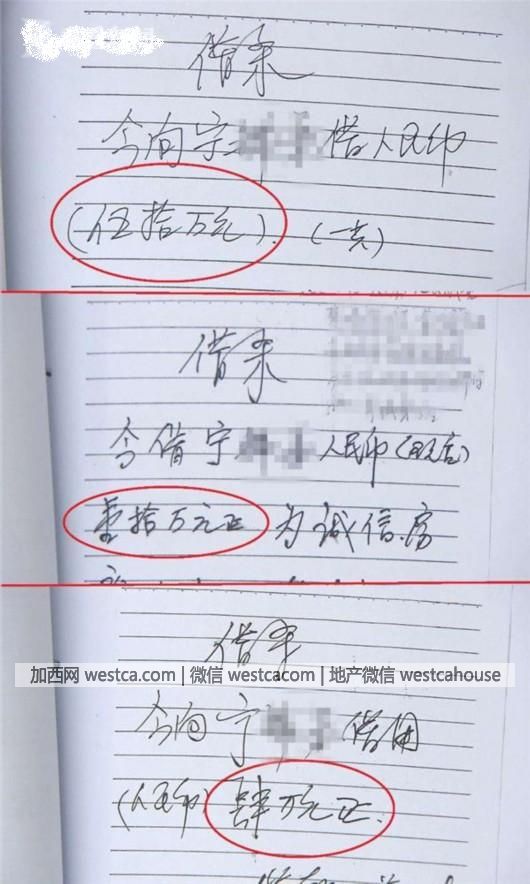 借条
今向宁 借人民币
(伍拾万元). (一共)
借条
今借宁 人民币
壹拾万元正 为诚信房
借条
加西网 westca.com | 微信 westcacom | 地产微信 westcahouse
今向宁 借用
(人民币) 肆万元正.